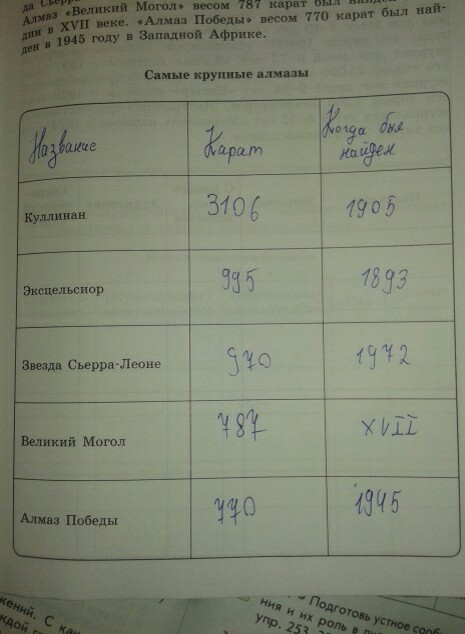 Алмаз «Великий Могол» весом 787 карат был
дии в XVII веке. «Алмаз Победы» весом 770 карат был най-
ден в 1945 году в Западной Африке.
Самые крупные алмазы
Название Карат Когда был найден
Куллинан 3106 1905
Эксцельсиор 995 1893
Звезда Сьерра-Леоне 970 1972
Великий Могол 787 XVII
Алмаз Победы 770 1945
жений. С
Подготовь устное сооб
ния и их роль в
упр. 253